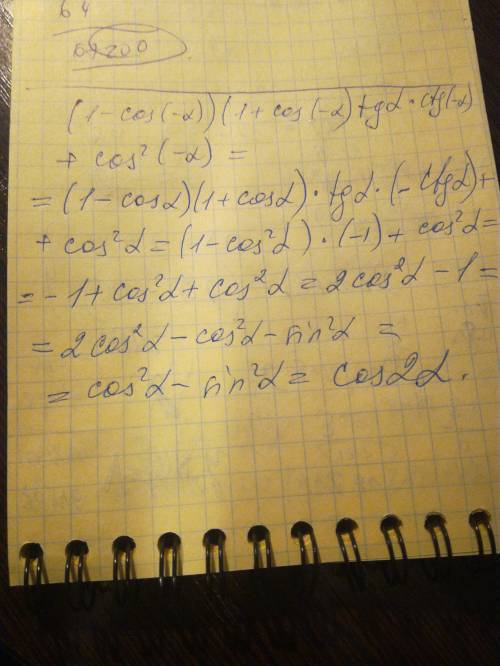 64
64200
(1-cos(-α))(1+cos(-α) tgα·ctg(-α)
+ cos²(-α) =
= (1-cosα)(1+cosα)·tgα·(-ctgα)+
+ cos²α = (1-cos²α)·(-1)+ cos²α =
= -1+cos²α+cos²α = 2cos²α -1 =
= 2cos²α - cos²α - sin²α =
= cos²α - sin²α = cos2α.